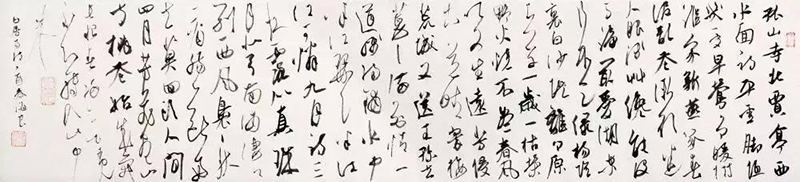 孤山寺北賈亭西
水面初平雲腳低
幾處早鶯爭暖樹
誰家新燕啄春
泥亂花漸欲迷
人眼淺草才能沒
馬蹄最愛湖東
行不足綠楊陰
裏白沙堤離離原
上草一歲一枯榮
野火燒不盡春風
吹又生遠芳侵
古道晴翠接
荒城又送王孫去
萋萋滿別情一
道殘陽鋪水中
半江瑟瑟半江
紅可憐九月初三
夜露似真珠
月似弓南浦淒淒
別西風裊裊秋
一看腸一斷好
去莫回頭人間
四月芳菲盡山
寺桃花始盛開
長恨春歸無覓
處不知轉入此中
來
白居易詩